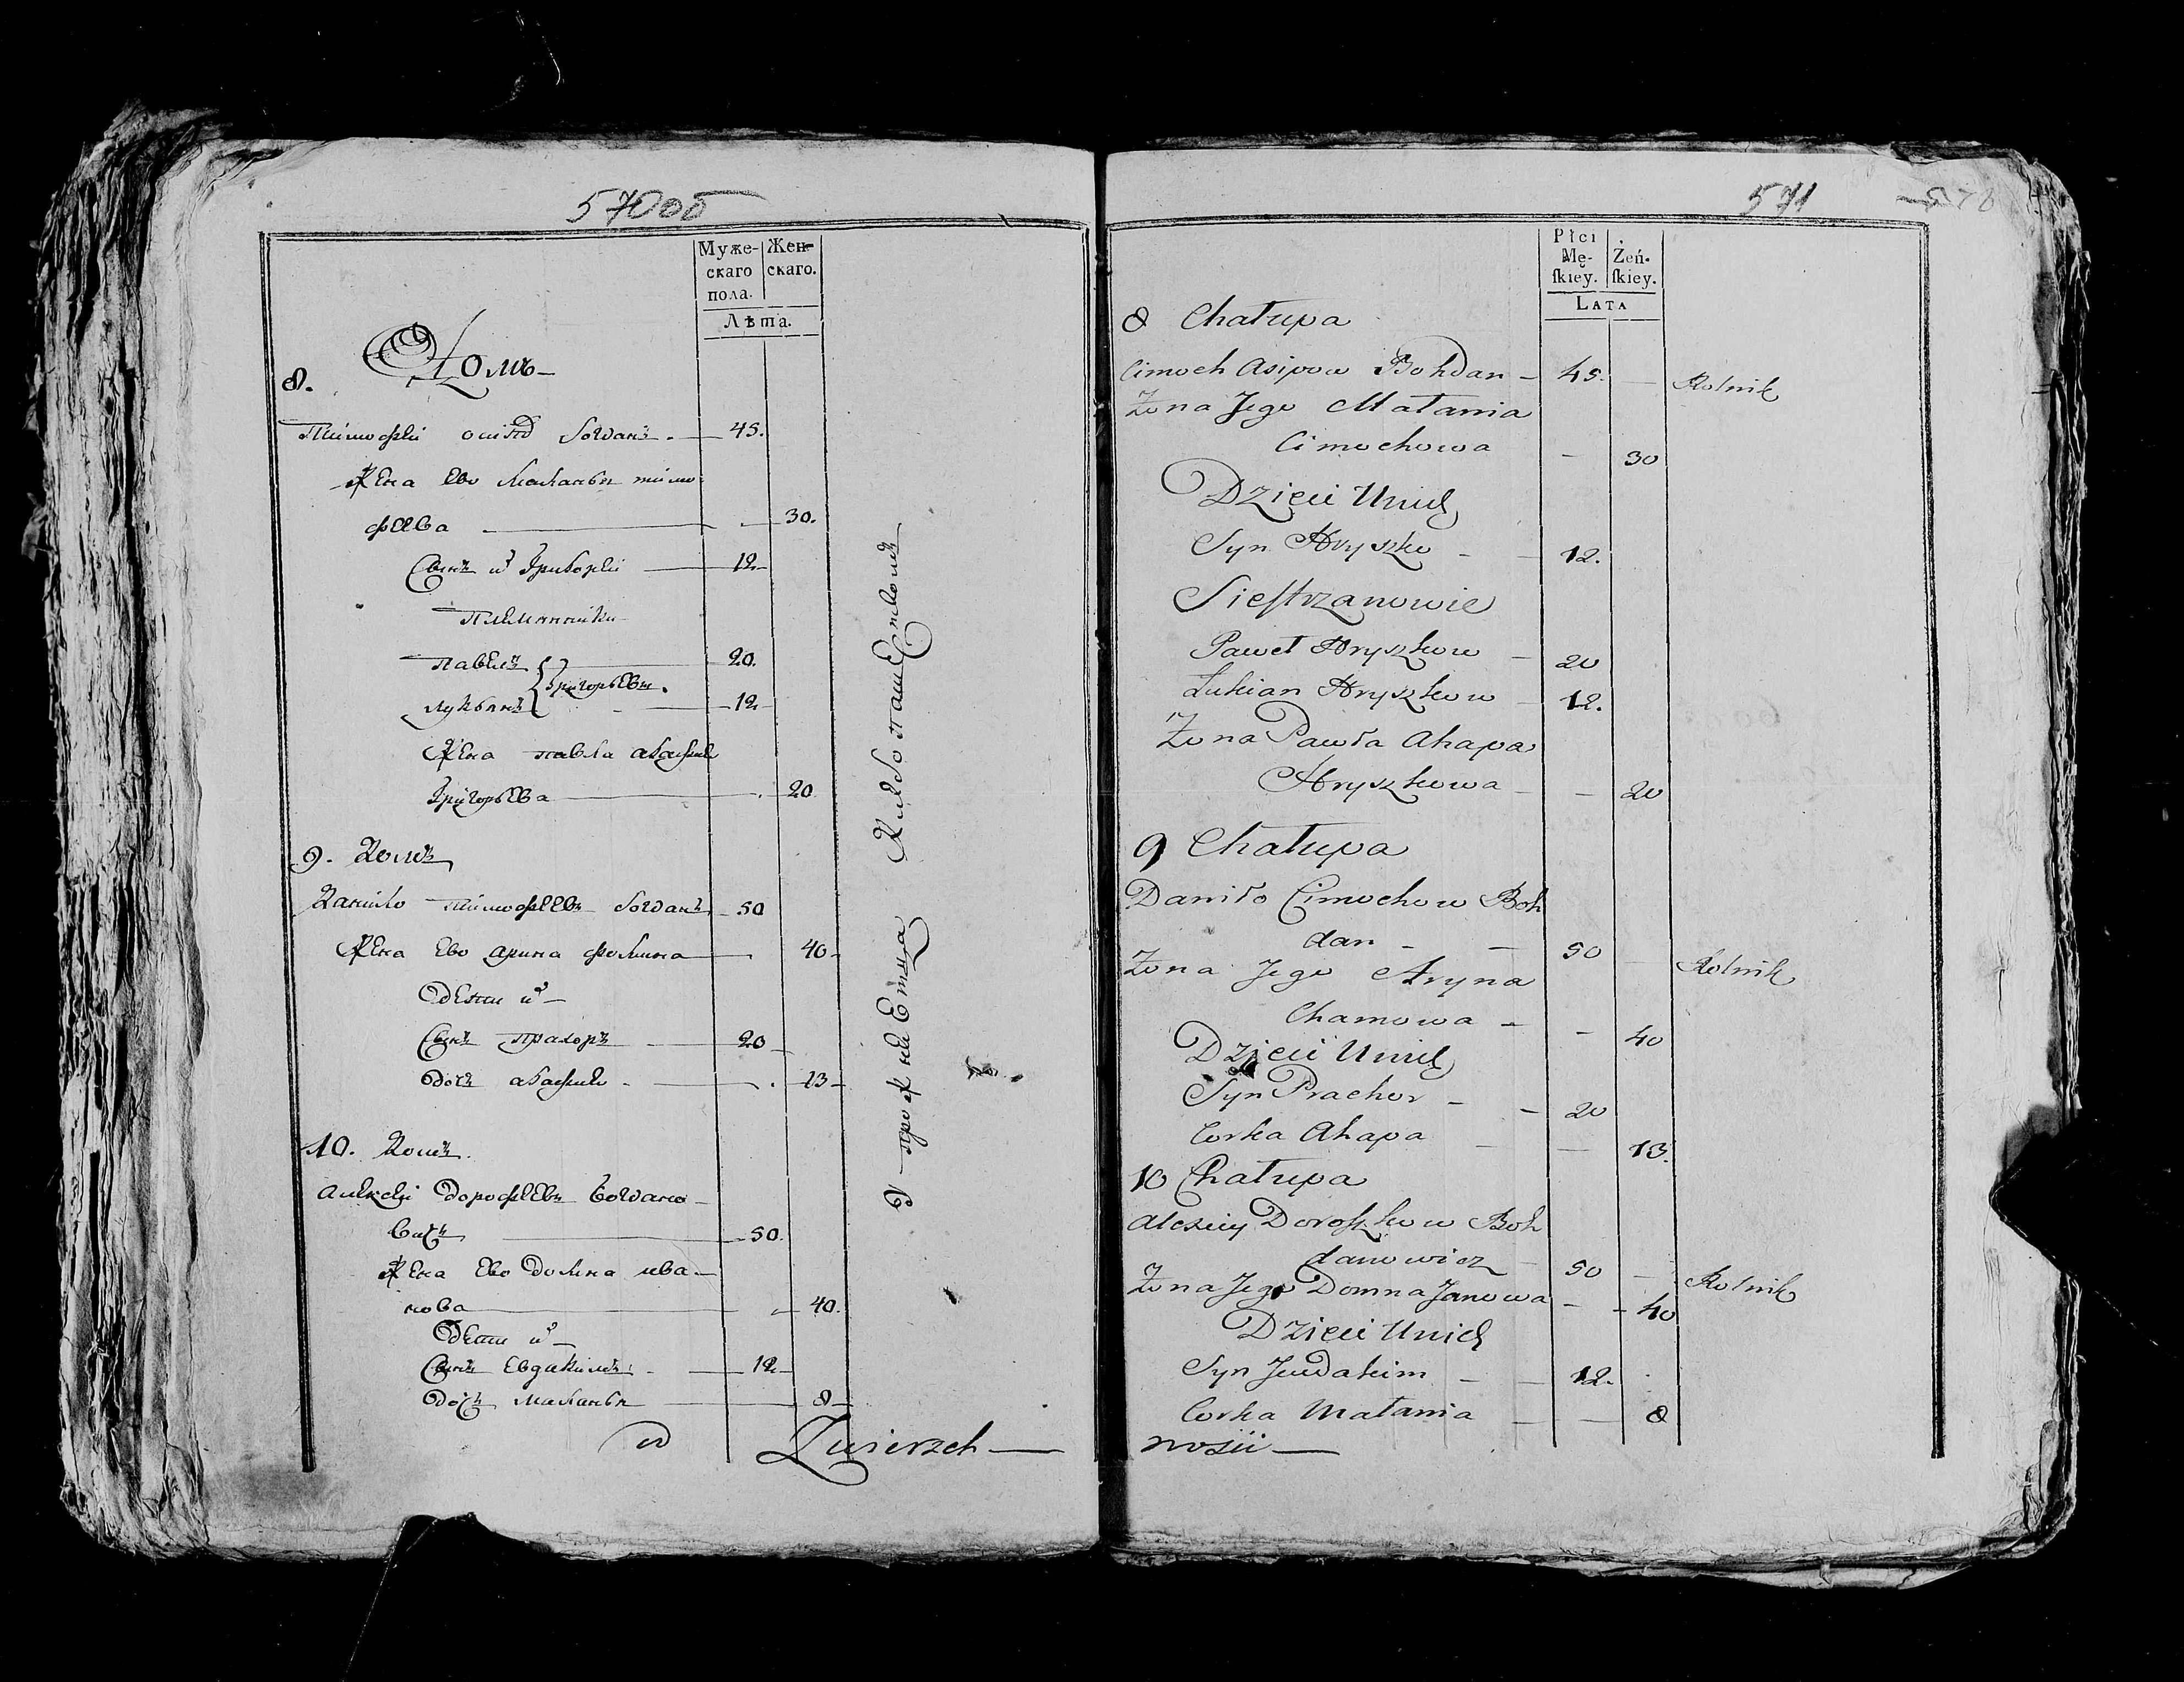 570об
Муже- Жен-
скаго скаго.
пола.
Лѣта.
8. Домъ
Тимофей осипов богдан 45.
Жена Ево Маланья тимо
феева 30.
Сынъ их Григорей 12
Племянники
павелъ 20.
Григорьевы
лукьянъ 12
Жена павла агафия
Григорьева 20
9. Домъ
Данило тимофеевъ богданъ 50
Жена Ево арина фомина 40
дети их
Сынъ прахоръ 20
дочь агафия 13
10. Домъ
алексей дорофеевъ богдано
вичъ 50.
Жена Ево домна ива
нова 40.
дети их
Сынъ Евдакимъ 12
дочь маланья 8
Zwierzch
571
Płci
Mę- Żeń-
ſkiey. ſkiey.
LATA
8 Chałupa
Cimoch Asipow Bohdan 45. Rolnik
Zona Jego Małania
Cimochowa 30
Dzieci Unich
Syn Hryszko 12.
Sieſtrzanowie
Paweł Hryszkow 20
Łukian Hryszkow 12.
Zona Pawła Ahapa
Hryszkowa 20
9 Chałupa
Daniło Cimochow Boh
dan 50 Rolnik
Zona Jego Aryna
Chamowa 40
Dzieci Unich
Syn Prachor 20
Corka Ahapa 13.
10 Chałupa
Alexiey Doroszkow Boh
danowicz 50 Rolnik
Zona Jego Domna Janowa 40
Dzieci Unich
Syn Jewdakim 12.
Corka Małania 8
nosii